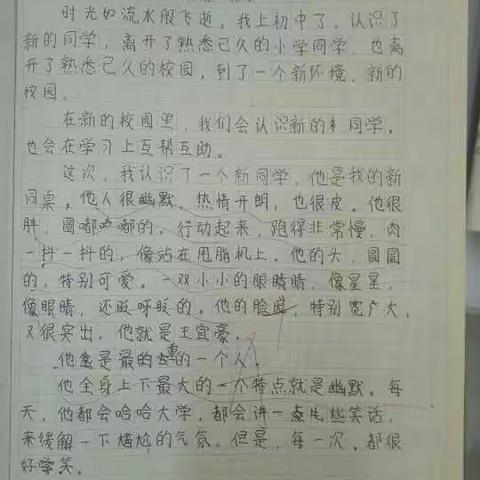 时光如流水般飞逝，我上初中了。认识了
新的同学，离开了熟悉已久的小学同学，也离
开了熟悉已久的校园，到了一个新环境，新的
校园。
在新的校园里，我们会认识新的同学，
也会在学习上互帮互助。
这次，我认识了一个新同学，他是我的新
同桌。他人很幽默、热情开朗，也很皮。他很
胖，圆嘟嘟的，行动起来，跑得非常慢，肉
一抖一抖的，像站在甩脂机上。他的头，圆圆
的，特别可爱。一双小小的眼睛，像星星，
像眼睛，还眨呀眨的。他的脸，特别宽广大，
又很突出，他就是王宜豪。
他是最的重的一个人。
他全身上下最大的一个特点就是幽默。每
天，他都会哈哈大学，都会讲一些笑话，
来缓解一下尴尬的气氛。但是，每一次，都很
好笑。